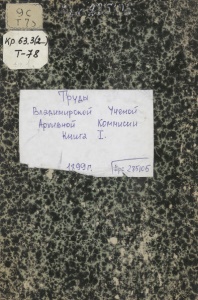 9С
Т78
Кр.63.3(2_)
Т-78
Труды
Владимирской Ученой
Архивной Комиссии
Книга I.
1899г.